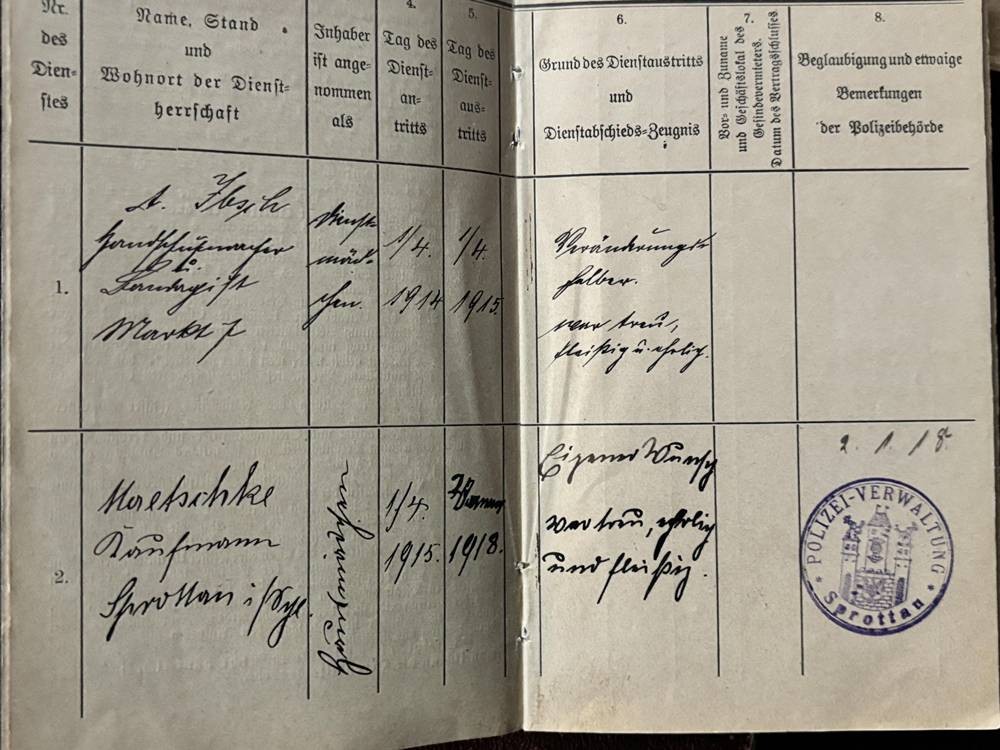 Nr.
des
Dien-
stes
Name, Stand
und
Wohnort der Dienst-
herrschaft
Inhaber
ist ange-
nommen
als
4.
Tag des
Dienst-
an-
tritts
5.
Tag des
Dienst-
aus-
tritts
6.
Grund des Dienstaustritts
und
Dienstabschieds-Zeugnis
7.
Vor- und Zuname
und Geschäftslokal des
Gesindevermieters.
Datum des Vertragsschlusses
8.
Beglaubigung und etwaige
Bemerkungen
der Polizeibehörde
1.
A.
Handschuhmacher
u.
Bandagist
Markt 7
Dienst-
mäd-
chen.
1/4.
1914
1/4.
1915.
Veränderungs-
halber.
war treu,
fleißig u. ehrlich.
2.
Maetschke
Kaufmann
Sprottau i/Schl.
Dienstmädchen
1/4.
1915.
2 Januar
1918.
Eigener Wunsch
war treu, ehrlich
und fleißig.
2. 1. 18.
POLIZEI-VERWALTUNG
* Sprottau *